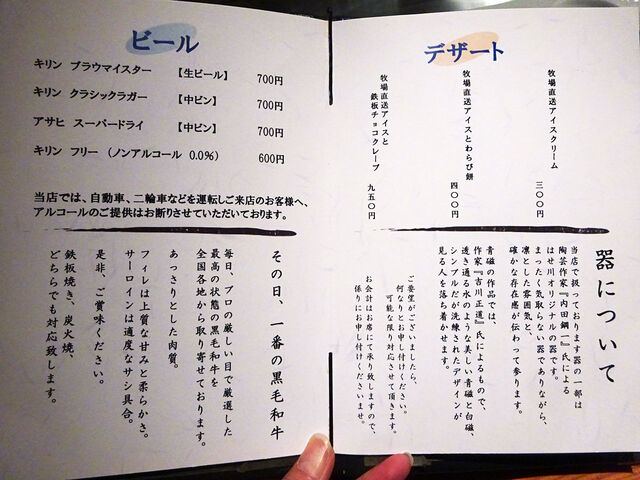 ビール
キリン ブラウマイスター 【生ビール】 700円
キリン クラシックラガー 【中ビン】 700円
アサヒ スーパードライ 【中ビン】 700円
キリン フリー （ノンアルコール 0.0%） 600円
当店では、自動車、二輪車などを運転しご来店のお客様へ、
アルコールのご提供はお断りさせていただいております。
その日、一番の黒毛和牛
毎日、プロの厳しい目で厳選した
最高の状態の黒毛和牛を
全国各地から取り寄せております。
あっさりとした肉質。
フィレは上質な甘みと柔らかさ。
サーロインは適度なサシ具合。
是非、ご賞味ください。
鉄板焼き、炭火焼、
どちらでも対応致します。
デザート
牧場直送アイスクリーム 三〇〇円
牧場直送アイスとわらび餅 四〇〇円
牧場直送アイスと
鉄板チョコクレープ 九五〇円
器について
当店で扱っております器の一部は
陶芸作家『内田鋼一』氏による
はせ川オリジナルの器です。
まったく気取らない器でありながら、
凛とした雰囲気と、
確かな存在感が伝わって参ります。
青磁の作品では、
作家『吉川正道』氏によるもので、
透き通る水のような美しい青磁と白磁、
シンプルだが洗練されたデザインが
見る人を落ち着かせます。
ご要望がございましたら、
何なりとお申し付けください。
可能な限り対応させて頂きます。
お会計はお席にて承り致しますので、
係りにお申し付けくださいませ。